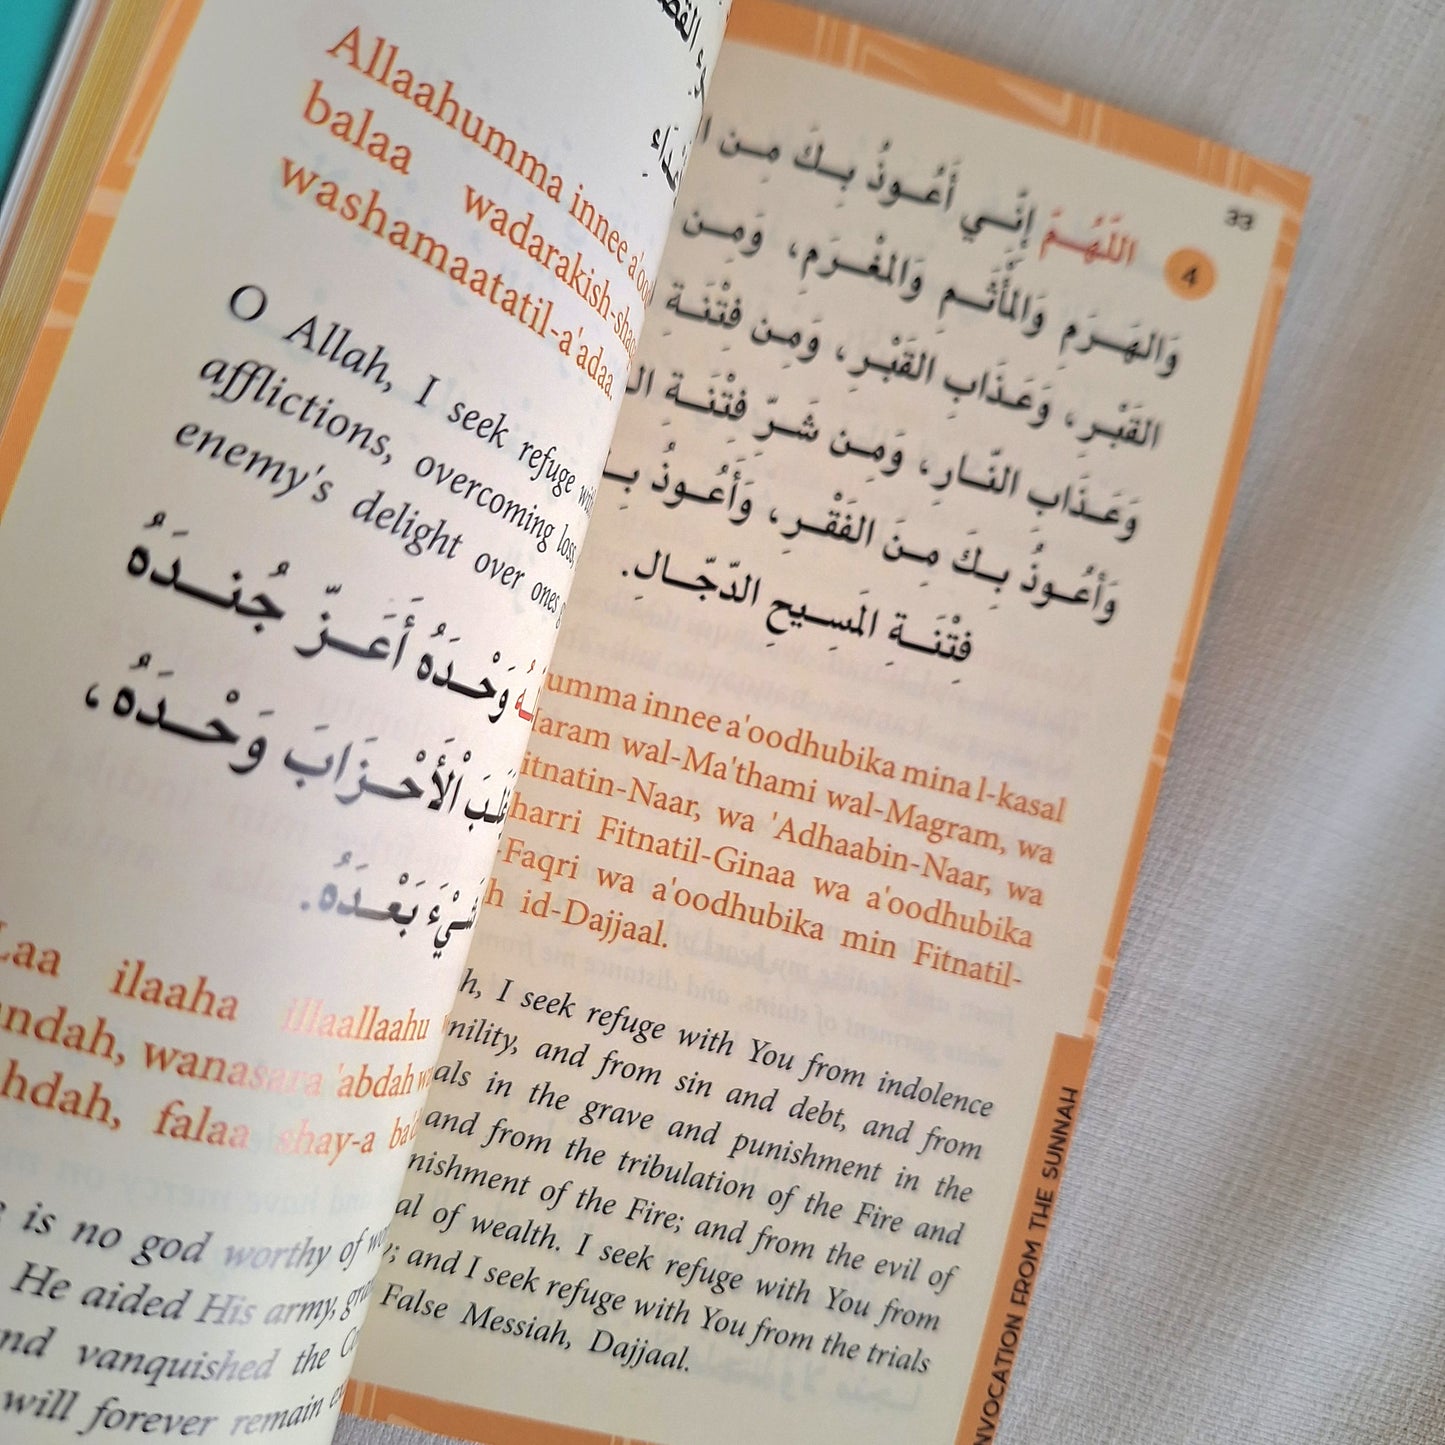 Allaahumma innee
balaa wadarakish-
washamaatatil-a'adaa.
O Allah, I seek refuge
afflictions, overcoming loss,
enemy's delight over ones
وَحْـدَهُ أَعَـزَّ جُنـدَهُ
الْأَحْـزَابَ وَحْـدَهُ،
بَعْـدَهُ.
ilaaha illaallaahu
wanasara 'abdah
falaa shay-a
is no god worthy of
He aided His army,
vanquished the
will forever remain
33
4
اللّهُـمَّ إِنَّـي أَعُـوذُ بِـكَ مِـن
وَالهَـرَمِ وَالمَأْثَـمِ وَالمَغْـرَمِ، وَمِـن
القَبْـرِ، وَعَـذَابِ القَبْـرِ، وَمِـن فِتْنَـةِ
وَعَـذَابِ النَّـارِ، وَمِـن شَـرِّ فِتْنَـةِ
وَأَعُـوذُ بِـكَ مِـنَ الفَقْـرِ، وَأَعُـوذُ
فِتْنَـةِ المَسِـيحِ الدَّجَّـالِ.
innee a'oodhubika mina l-kasal
wal-Ma'thami wal-Magram, wa
wa 'Adhaabin-Naar, wa
Fitnatil-Ginaa wa a'oodhubika
wa a'oodhubika min Fitnatil-
id-Dajjaal.
I seek refuge with You from indolence
and from sin and debt, and from
in the grave and punishment in the
and from the tribulation of the Fire and
of the Fire; and from the evil of
of wealth. I seek refuge with You from
and I seek refuge with You from the trials
False Messiah, Dajjaal.
FROM THE SUNNAH